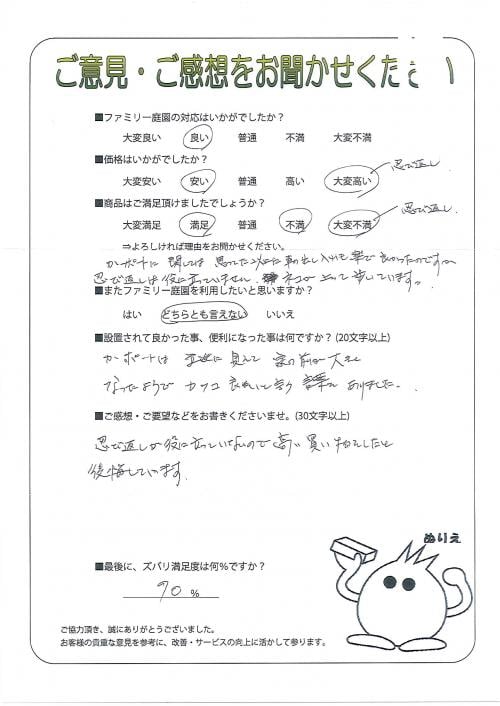 ご意見・ご感想をお聞かせください
■ファミリー庭園の対応はいかがでしたか？
大変良い 良い 普通 不満 大変不満
■価格はいかがでしたか？
忍び返し
大変安い 安い 普通 高い 大変高い
■商品はご満足頂けましたでしょうか？
忍び返し
大変満足 満足 普通 不満 大変不満
⇒よろしければ理由をお聞かせください。
カーポートに関しては思っていた以上に車の出し入れも楽で良かったのですが、
忍び返しは役に立っていません。ネコが上って歩いています。
■またファミリー庭園を利用したいと思いますか？
はい どちらとも言えない いいえ
■設置されて良かった事、便利になった事は何ですか？(20文字以上)
カーポートは立派に見えて家の前が大きく
なったようでカッコ良いと言う言葉もありました。
■ご感想・ご要望などをお書きくださいませ。(30文字以上)
忍び返しが役に立っていないので高い買い物をしたと
後悔しています。
ぬりえ
■最後に、ズバリ満足度は何%ですか？
90 %
ご協力頂き、誠にありがとうございました。
お客様の貴重な意見を参考に、改善・サービスの向上に活かして参ります。